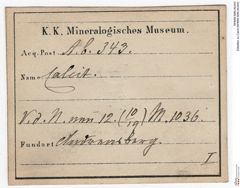 K. K. Mineralogisches Museum.
Acq. Post A. b. 343.
Name Calcit.
V. d. N. nun 12. (10/19) M. 1036.
Fundort Andreasberg
I